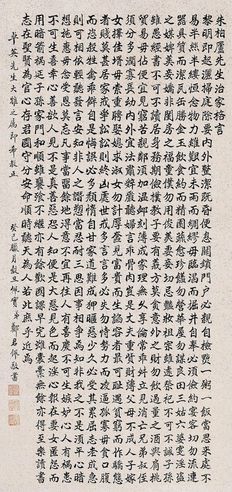 朱柏廬先生治家格言
黎明即起灑掃庭除要內外整潔既昏便息關鎖門戶必親自檢點一粥一飯當思來處不
易半絲半縷恆念物力維艱宜未雨而綢繆毋臨渴而掘井自奉必須儉約宴客切勿留連
器具質而潔瓦缶勝金玉飲食約而精園蔬愈珍饈勿營華屋勿謀良田三姑六婆實淫盜
之媒婢美妾嬌非閨房之福童僕勿用俊美妻妾切忌艷粧祖宗雖遠祭祀不可不誠子孫
雖愚經書不可不讀居身務期質樸教子要有義方勿貪意外之財勿飲過量之酒與肩挑
貿易毋佔便宜見窮苦親鄰須加溫卹刻薄成家理無久享倫常乖舛立見消亡兄弟叔姪
須分多潤寡長幼內外宜法肅辭嚴聽婦言乖骨肉豈是丈夫重貲財薄父母不成人子嫁
女擇佳壻毋索重聘娶媳求淑女勿計厚奩見富貴而生諂容者最可恥遇貧窮而作驕態
者賤莫甚居家戒爭訟訟則終凶處世戒多言言多必失毋恃勢力而凌逼孤寡毋貪口腹
而恣殺牲禽乖僻自是悔誤必多頹惰自甘家道難成狎暱惡少久必受其累屈志老成急
則可相依輕聽發言安知非人之譖愬當忍耐三思因事相爭焉知非我之不是須平心暗
想施惠毋念受恩莫忘凡事當留餘地得意不宜再往人有喜慶不可生妒忌心人有禍患
不可生喜幸心善欲人見不是真善惡恐人知便是大惡見色而起淫心報在妻女匿怨而
用暗箭禍延子孫家門和順雖饔飧不繼亦有餘歡國課早完雖囊橐無餘亦得至樂讀書
志在聖賢為官心存君國守分安命順時聽天為人若此庶乎近焉
華英先生大雅之屬即希教正
癸巳 鄭 佩敬書